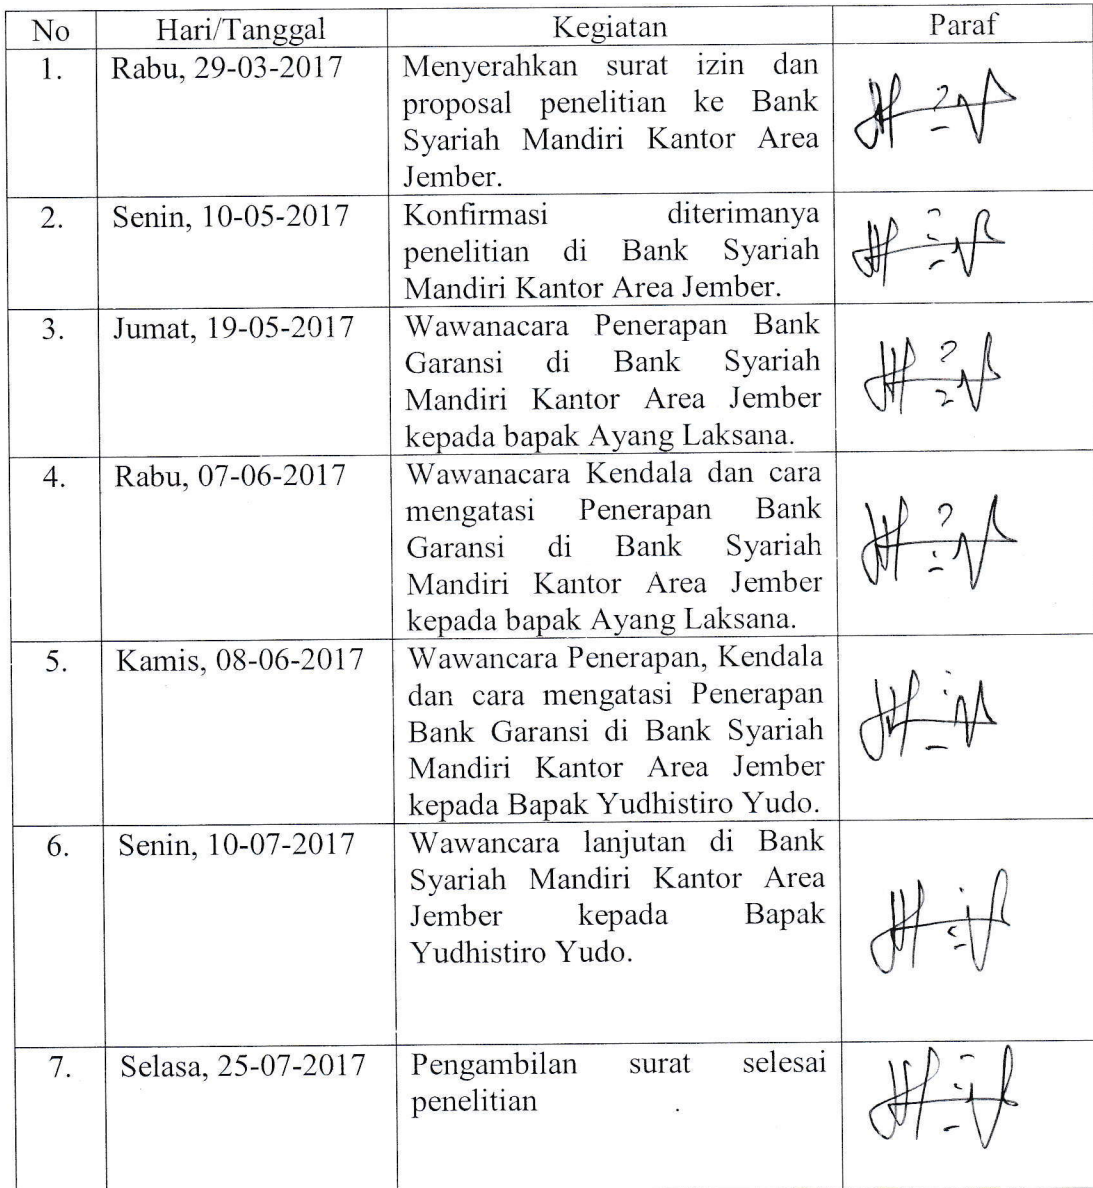 No Hari/Tanggal Kegiatan Paraf
1. Rabu, 29-03-2017 Menyerahkan surat izin dan
proposal penelitian ke Bank
Syariah Mandiri Kantor Area
Jember.
2. Senin, 10-05-2017 Konfirmasi diterimanya
penelitian di Bank Syariah
Mandiri Kantor Area Jember.
3. Jumat, 19-05-2017 Wawanacara Penerapan Bank
Garansi di Bank Syariah
Mandiri Kantor Area Jember
kepada bapak Ayang Laksana.
4. Rabu, 07-06-2017 Wawanacara Kendala dan cara
mengatasi Penerapan Bank
Garansi di Bank Syariah
Mandiri Kantor Area Jember
kepada bapak Ayang Laksana.
5. Kamis, 08-06-2017 Wawancara Penerapan, Kendala
dan cara mengatasi Penerapan
Bank Garansi di Bank Syariah
Mandiri Kantor Area Jember
kepada Bapak Yudhistiro Yudo.
6. Senin, 10-07-2017 Wawancara lanjutan di Bank
Syariah Mandiri Kantor Area
Jember kepada Bapak
Yudhistiro Yudo.
7. Selasa, 25-07-2017 Pengambilan surat selesai
penelitian